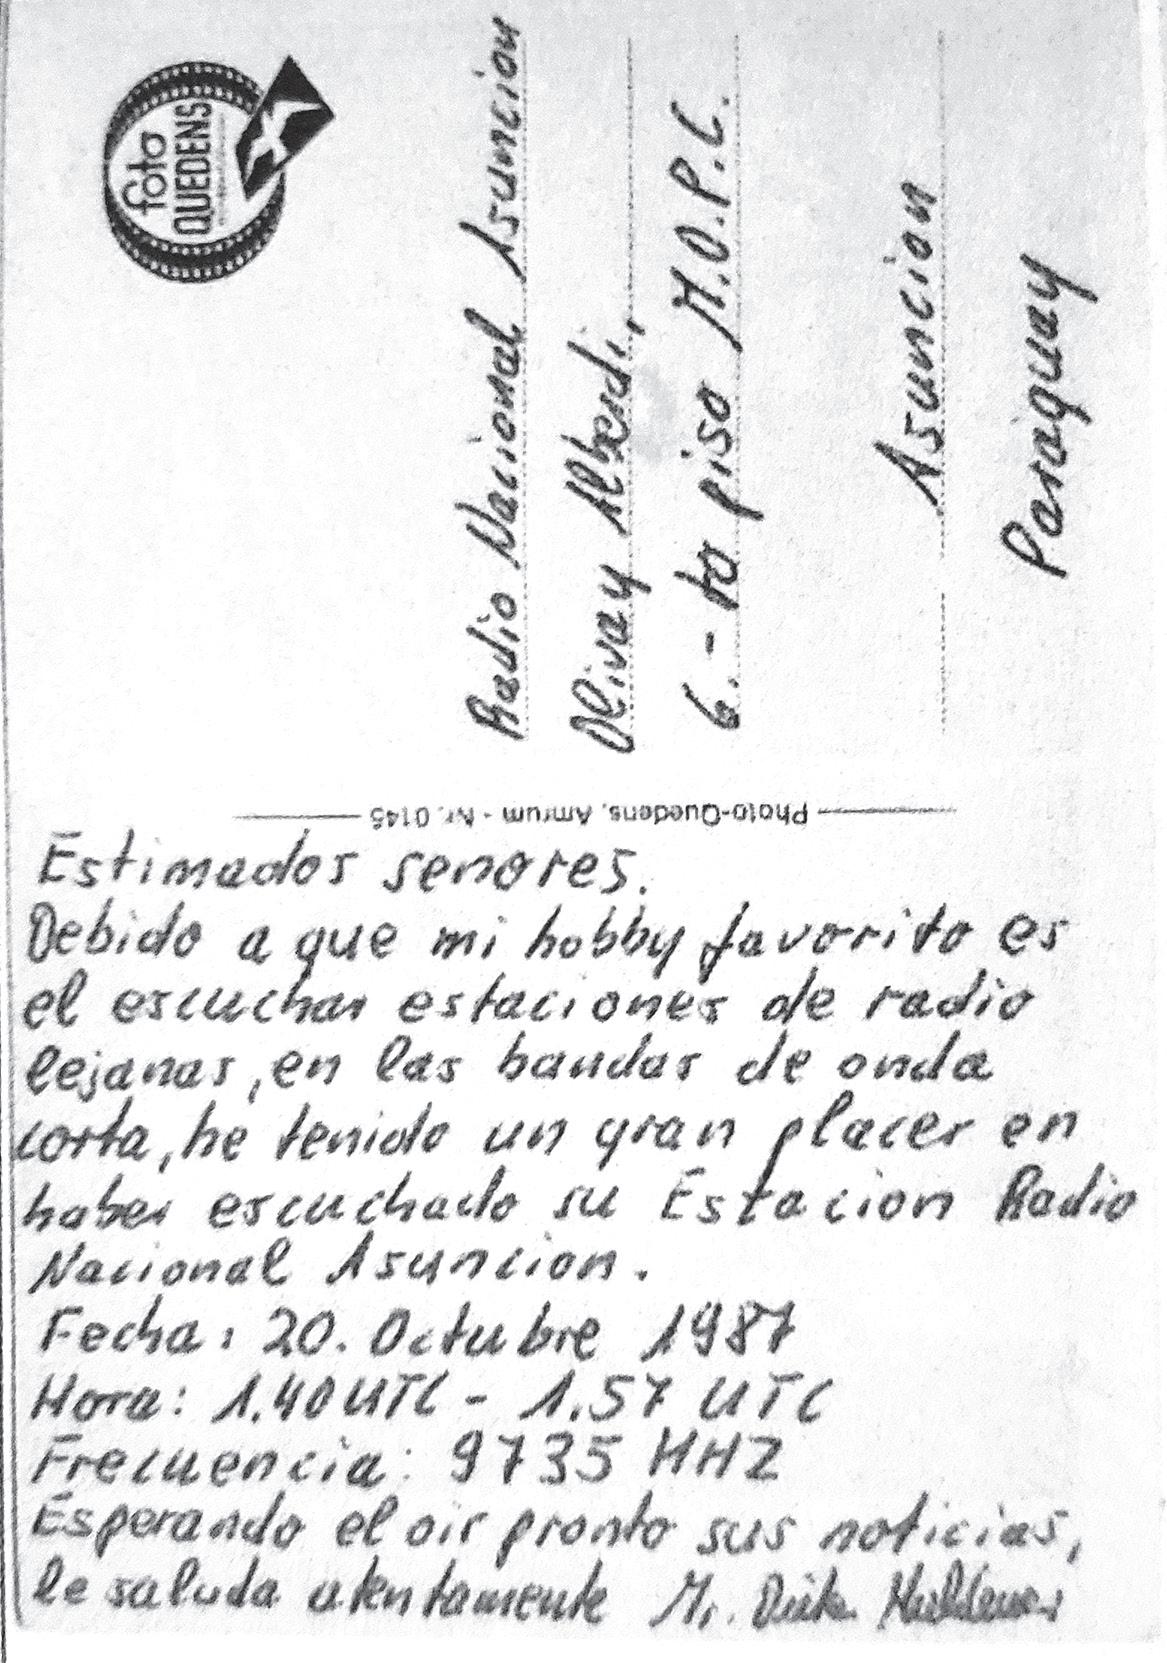 foto
QUEDENS
Radio Nacional Asuncion
Oliva y Alberdi,
6.-to piso M.O.P.C.
Asuncion
Paraguay
Photo-Quedens, Amrum - Nr. 0145
Estimados senores.
Debido a que mi hobby favorito es
el escuchar estaciones de radio
lejanas, en las bandas de onda
corta, he tenido un gran placer en
haber escuchado su Estacion Radio
Nacional Asuncion.
Fecha: 20. Octubre 1987
Hora: 1.40 UTC - 1.57 UTC
Frecuencia: 9735 MHZ
Esperando el oir pronto sus noticias,
le saluda atentamente Mr. Dirk